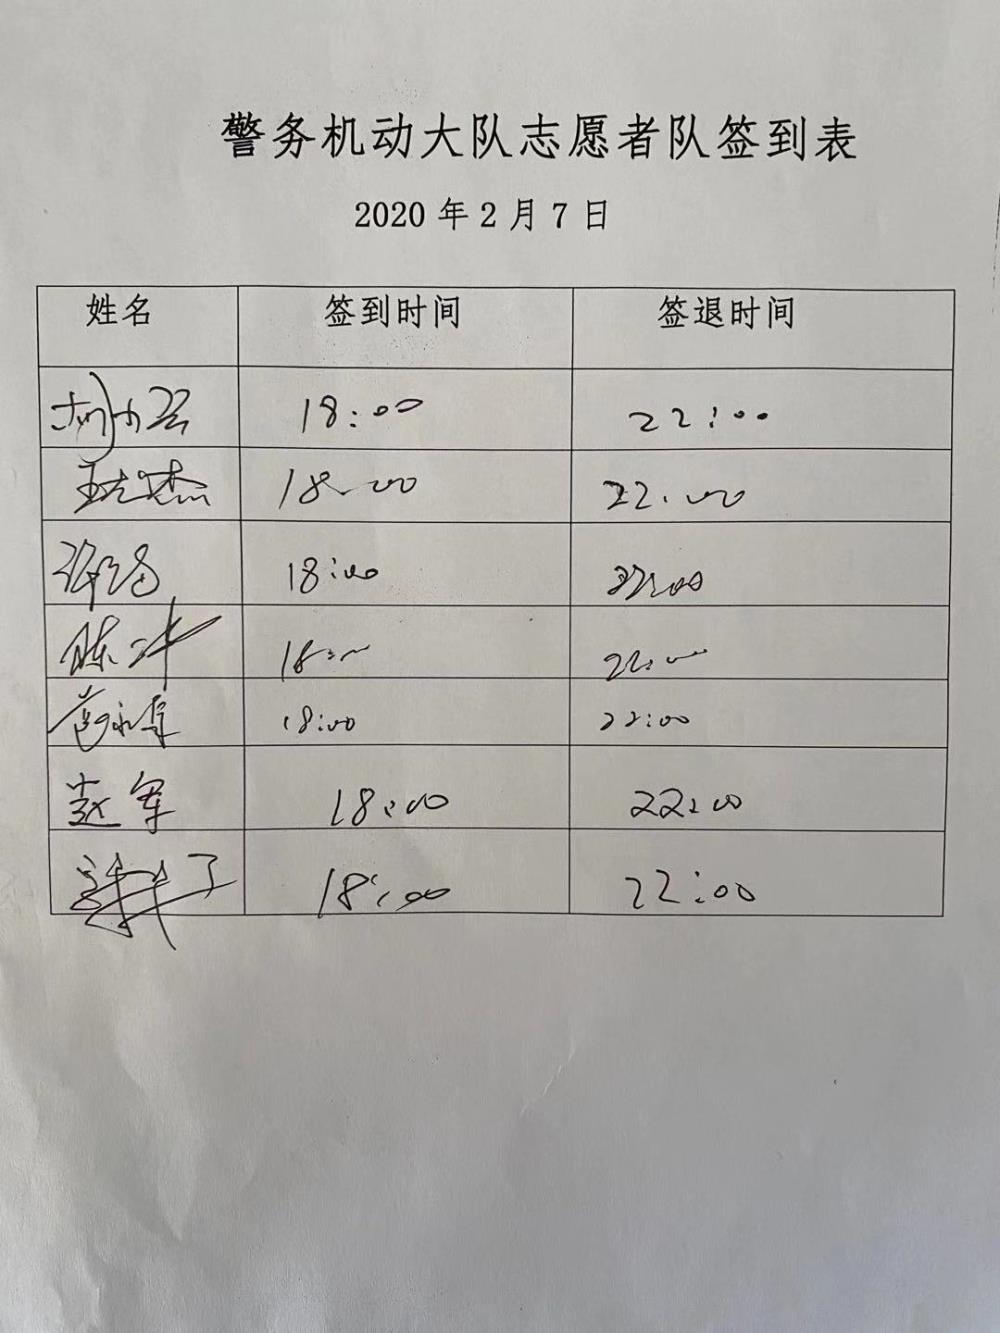 警务机动大队志愿者队签到表
2020年2月7日
姓名 签到时间 签退时间
18:00 22:00
18:00 22:00
18:00 22:00
陈冲 18:00 22:00
18:00 22:00
赵军 18:00 22:00
18:00 22:00